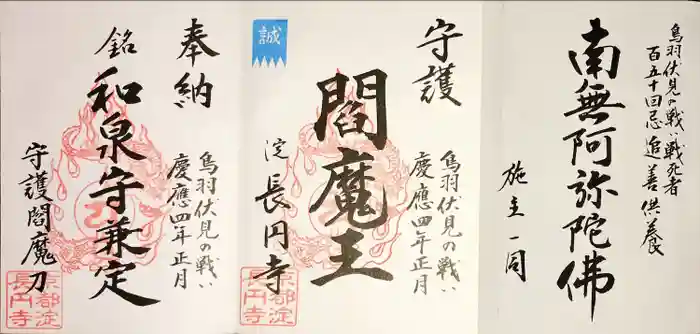 南無阿弥陀佛
鳥羽伏見の戦い戦死者
百五十回忌追善供養
施主一同
誠
守護
閻魔王
鳥羽伏見の戦い
慶應四年正月
淀 長円寺
京都淀
長円寺
奉納
銘 和泉守兼定
鳥羽伏見の戦い
慶應四年正月
守護閻魔刀
京都淀
長円寺